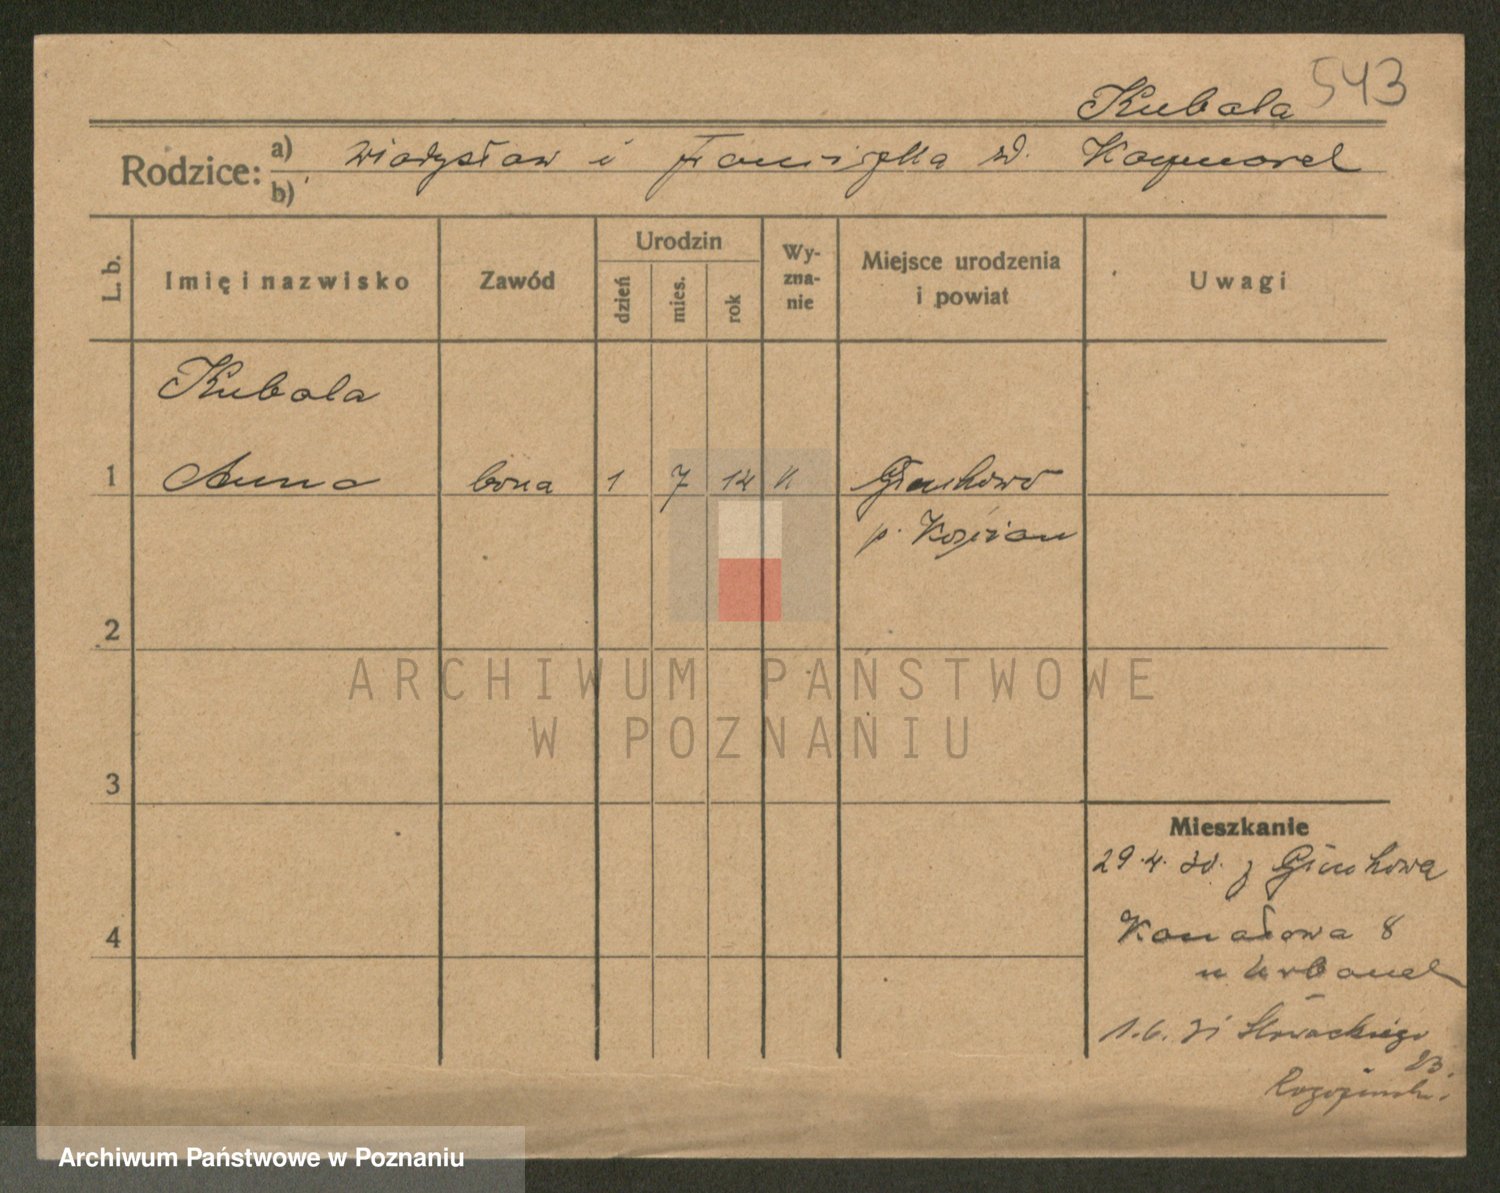 Kubala 543
Rodzice: a) Władysław i Franciszka zd. Kaczmarek
b)
L. b.
Imię i nazwisko
Zawód
Urodzin
dzień
mies.
rok
Wy-
zna-
nie
Miejsce urodzenia
i powiat
Uwagi
Kubala
1 Anna bona 1 7 14 k
p. Kościan
2
3
4
Mieszkanie
29.4.30. z
8
u Urbanek
1.6.31 Słowackiego
23.
ARCHIWUM PAŃSTWOWE
W POZNANIU
Archiwum Państwowe w Poznaniu